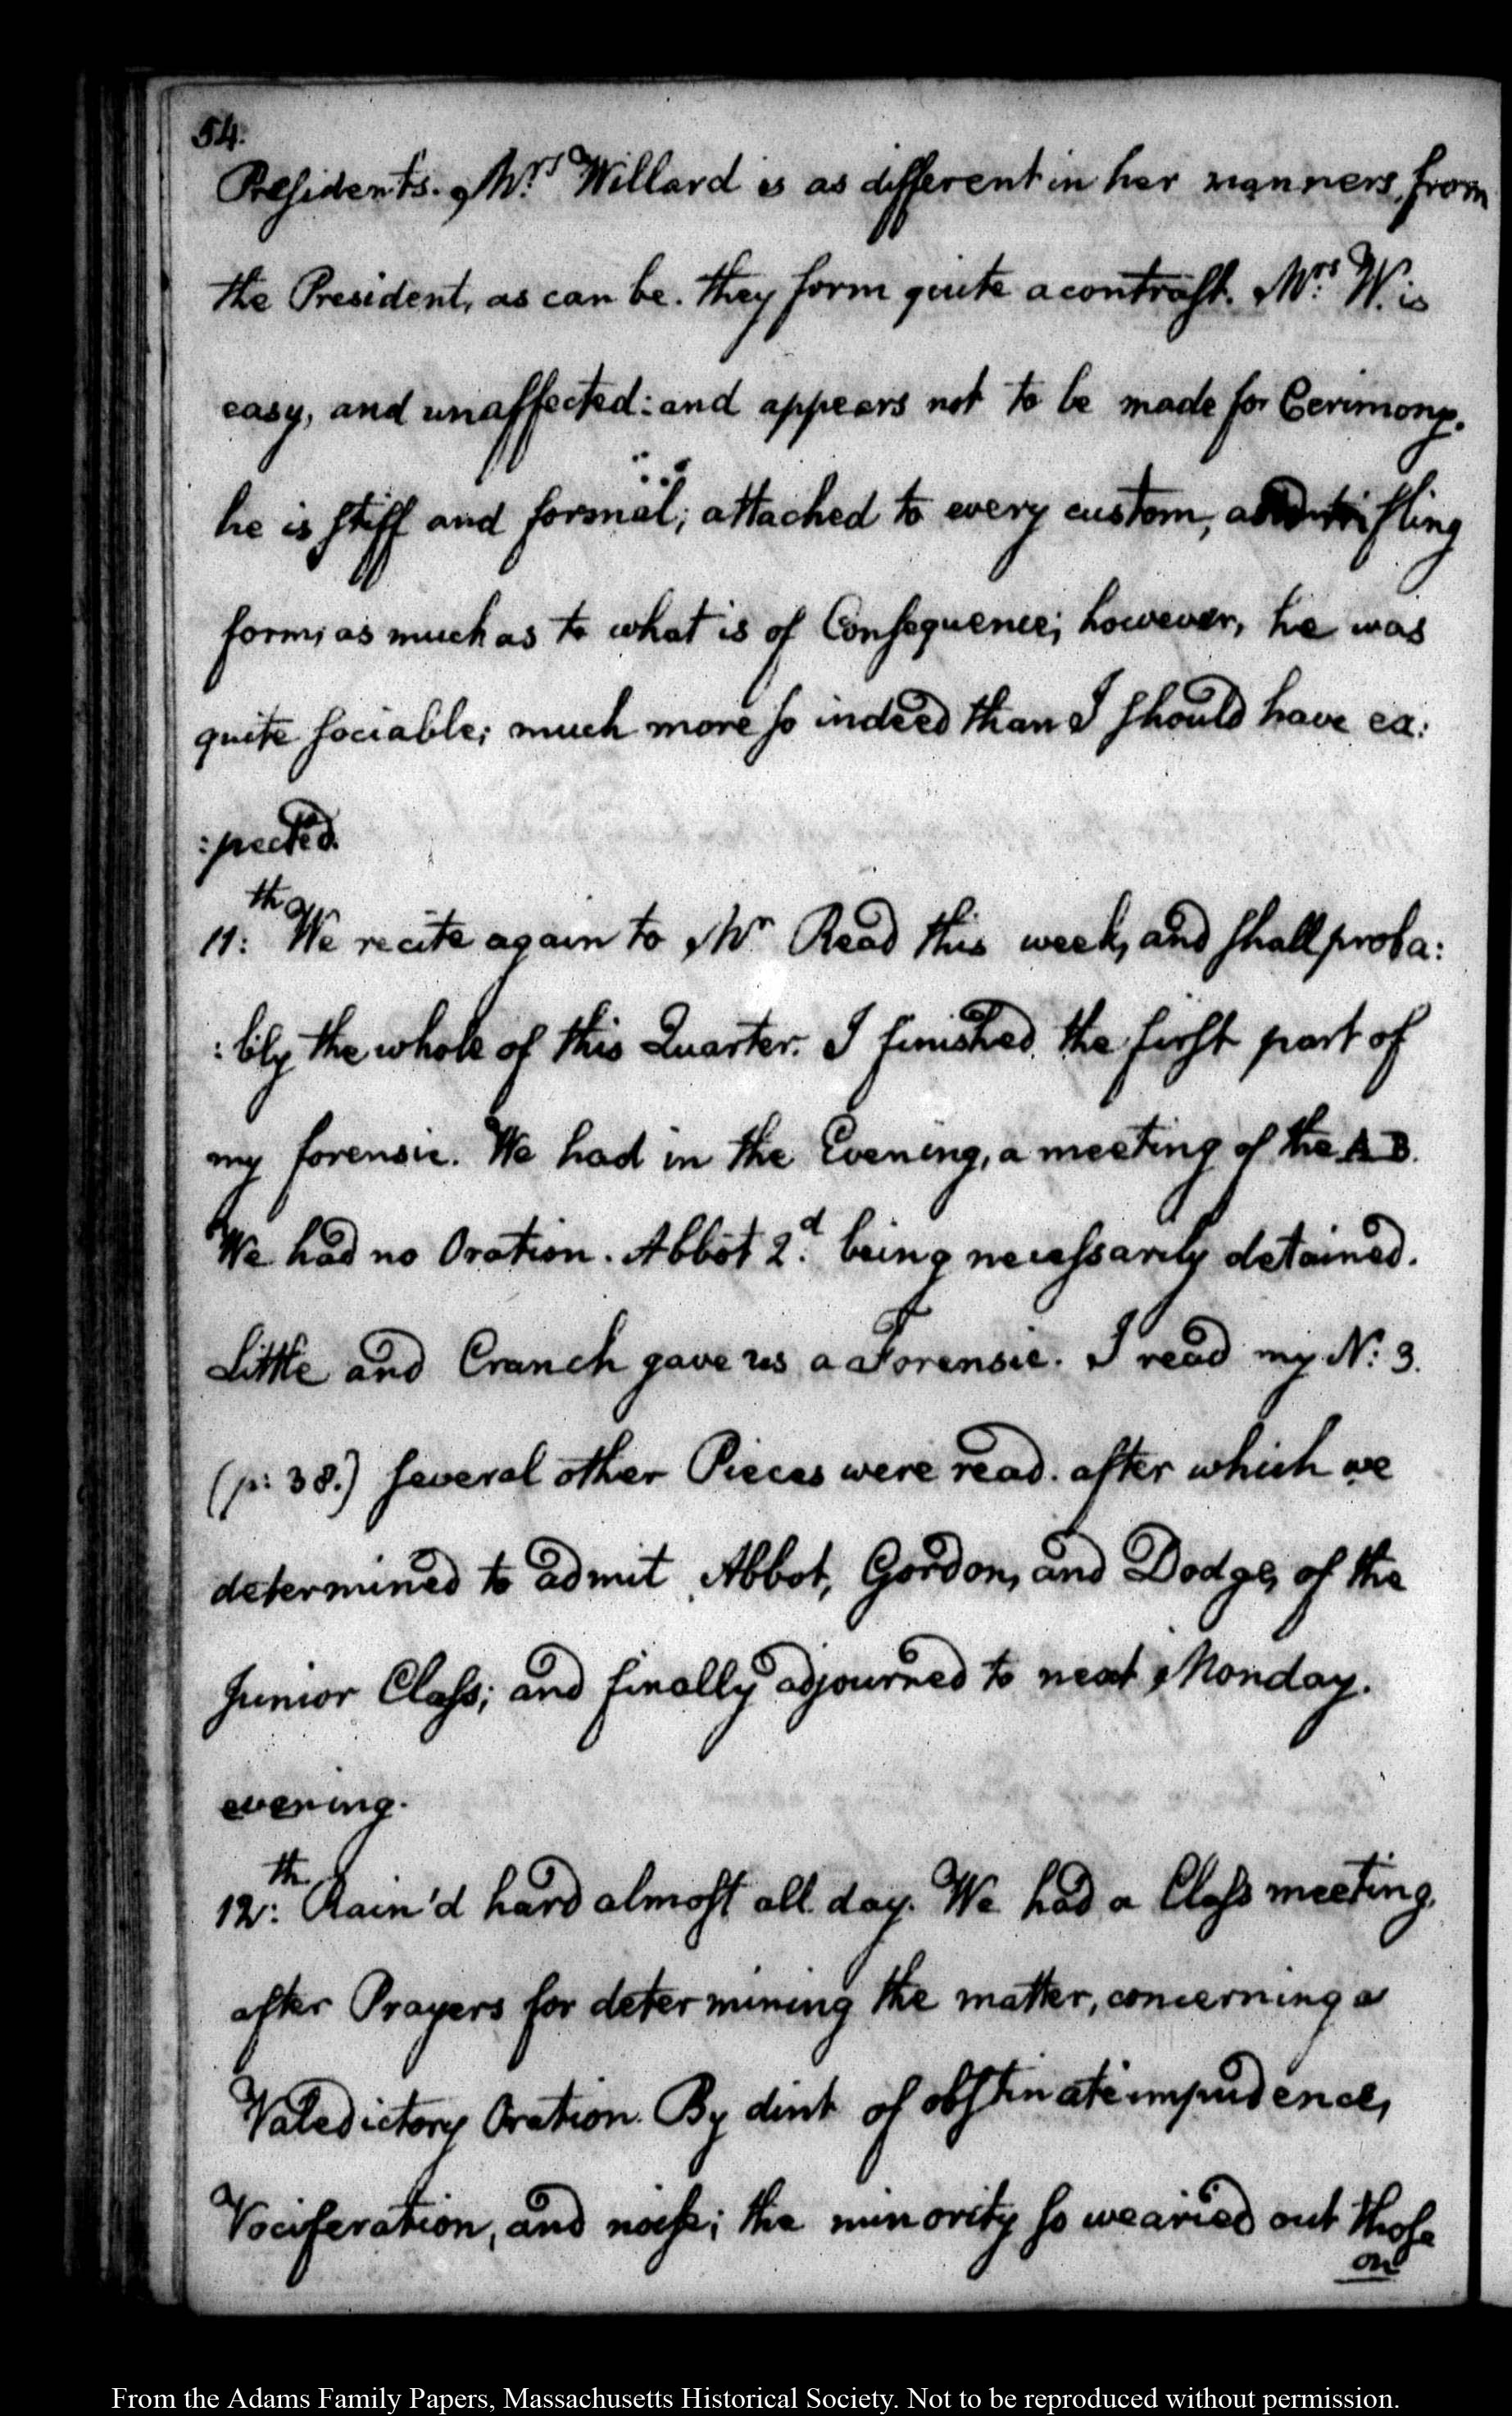 54.
Presidents. Mrs Willard is as different in her manners, from
the President, as can be. they form quite a contrast. Mrs W. is
easy, and unaffected: and appears not to be made for Cerimony.
he is stiff and formal; attached to every custom, and trifling
form, as much as to what is of Consequence; however, he was
quite sociable; much more so indeed than I should have ex:
:pected.
11th: We recite again to Mr Read this week, and shall proba:
:bly the whole of this Quarter. I finished the first part of
my forensic. We had in the Evening, a meeting of the A B.
We had no Oration. Abbot 2d. being necessarily detained.
Little and Cranch gave us a Forensic. I read my N: 3.
(p: 38.) several other Pieces were read. after which we
determined to admit Abbot, Gordon, and Dodge, of the
Junior Class; and finally adjourned to next Monday.
evening.
12th: Rain'd hard almost all day. We had a Class meeting,
after Prayers for determining the matter, concerning a
Valedictory Oration. By dint of obstinate impudence,
Vociferation, and noise; the minority so wearied out those
on
From the Adams Family Papers, Massachusetts Historical Society. Not to be reproduced without permission.